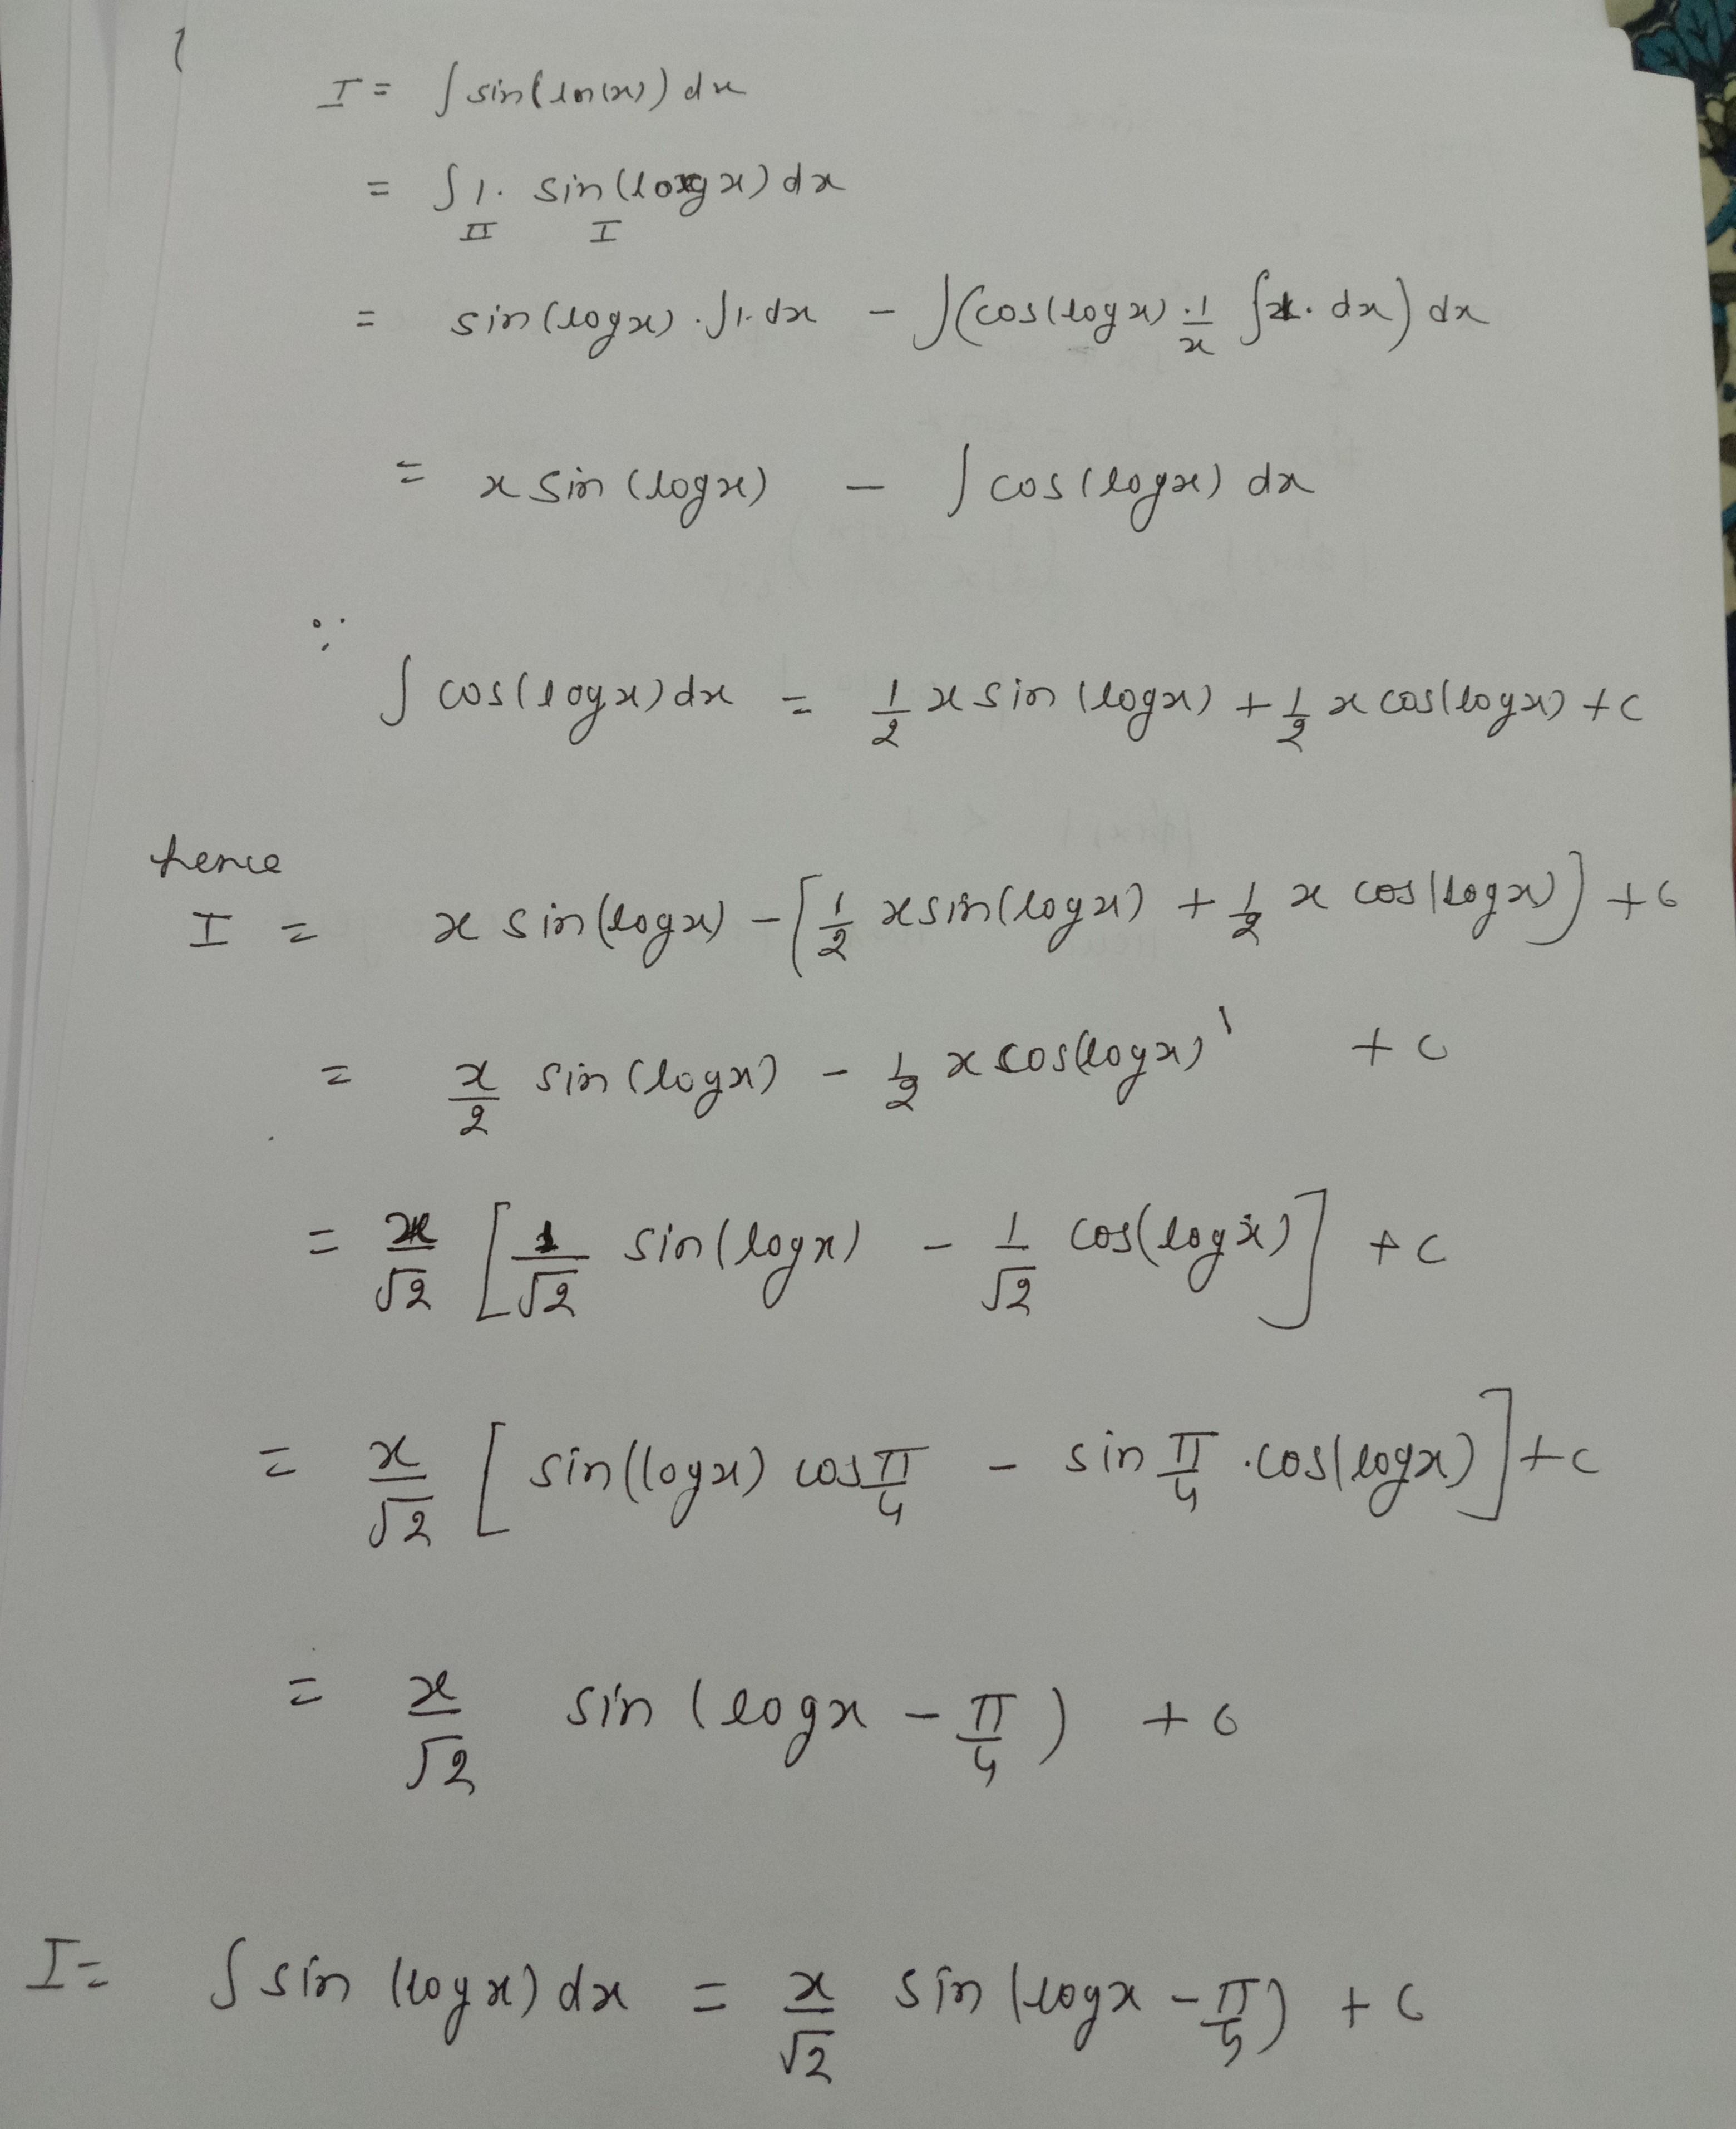 I = ∫ sin(ln(x)) dx
= ∫ 1. sin(log x) dx
II I
= sin(log x) . ∫1. dx - ∫(cos(log x) . 1/x ∫1. dx) dx
= x sin(log x) - ∫ cos(log x) dx
∵
∫ cos(log x) dx = 1/2 x sin(log x) + 1/2 x cos(log x) + c
hence
I = x sin(log x) - [1/2 x sin(log x) + 1/2 x cos(log x)] + c
= x/2 sin(log x) - 1/2 x cos(log x) + c
= x/√2 [1/√2 sin(log x) - 1/√2 cos(log x)] + c
= x/√2 [sin(log x) cos π/4 - sin π/4 . cos(log x)] + c
= x/√2 sin(log x - π/4) + c
I = ∫ sin(log x) dx = x/√2 sin(log x - π/4) + c